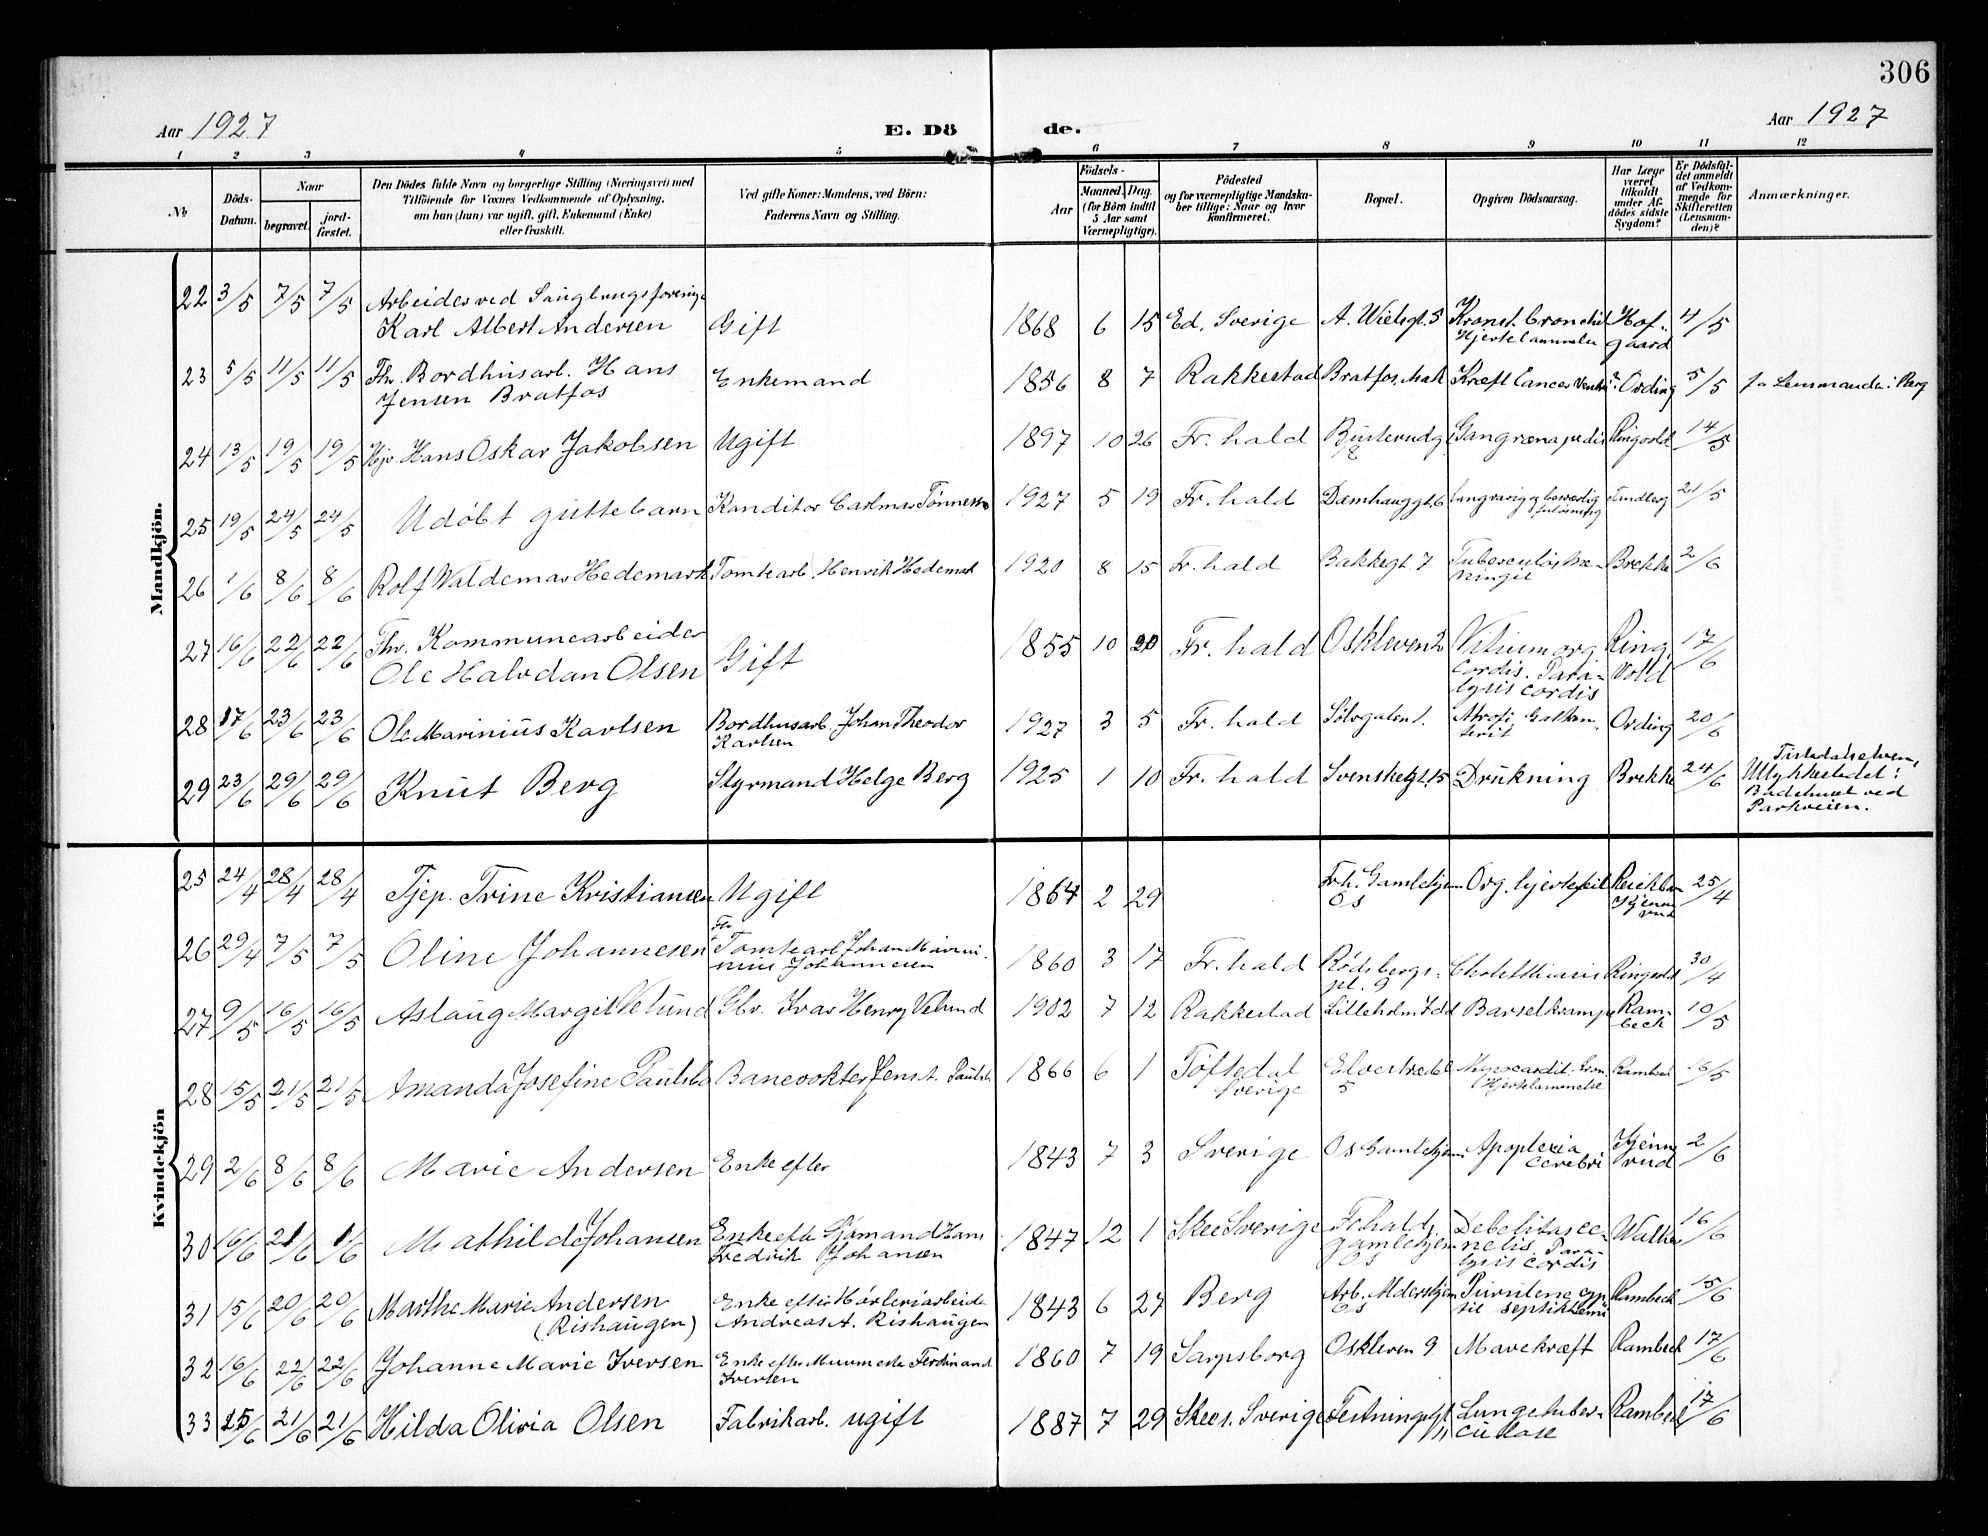 306
Aar 1927
E. Dö
de.
Aar 1927
1 2 3 4 5 6 7 8 9 10 11 12
No
Döds-
Datum.
Naar
begravet.
jord-
fæstet.
Den Dödes fulde Navn og borgerlige Stilling (Næringsvei) med
Tilföiende for Voxnes Vedkommende af Oplysning,
om han (hun) var ugift, gift, Enkemand (Enke)
eller fraskilt.
Ved gifte Koner: Mandens, ved Börn:
Faderens Navn og Stilling.
Födsels-
Aar
Maaned. Dag.
(for Börn indtil
5 Aar samt
Værnepligtige).
Födested
og for værnepligtige Mandska-
ber tillige: Naar og hvor
konfirmeret.
Bopæl.
Opgiven Dödsaarsag.
Har Læge
været
tilkaldt
under Af-
dödes sidste
Sygdom?
Er Dödsfal-
det anmeldt
af Vedkom-
mende for
Skifteretten
(Lensman-
den)?
Anmærkninger.
Mandkjön.
22 3/5 7/5 7/5 Arbeider ved
Karl Albert Andersen Gift 1868 6 15 Ed, Sverige A. Wielsgt. 5 Hof-
gaard 4/5
23 5/5 11/5 11/5 Fhv. Bordhusarb. Hans
Jensen Bratfos Enkemand 1856 8 7 Rakkestad Bratfos, Mak Kræft Cancer Ording 5/5
24 13/5 19/5 19/5 Hans Oskar Jakobsen Ugift 1897 10 26 Fr. hald Gangræna pedis Ringvold 14/5
25 19/5 24/5 24/5 Udöbt guttebarn Konditor Carlmar Tønnesen 1927 5 19 Fr. hald Damhauggt. 6 langvarig og besværlig
Tandberg 21/5
26 1/6 8/6 8/6 Rolf Valdemar Hedemark Tomtearb. Henrik Hedemark 1920 8 15 Fr. hald Bakkegt 7 Tuberculøs me-
ningit Brekke 2/6
27 16/6 22/6 22/6 Fhv. Kommunearbeider
Ole Halvdan Olsen Gift 1855 10 20 Fr. hald Oskleven 2 Vitium org
cordis. Para-
lysis cordis Ring
vold 17/6
28 17/6 23/6 23/6 Ole Marinius Karlsen Bordhusarb. Johan Theodor
Karlsen 1927 3 5 Fr. hald Atrofi, Gastroen-
terit Ording 20/6
29 23/6 29/6 29/6 Knut Berg Styrmand Helge Berg 1925 1 10 Fr. hald Svenskegt. 15 Drukning Brekke 24/6 Tistedalselven,
Ulykkestedet:
Badehuset ved
Parkveien.
Kvindekjön
25 24/4 28/4 28/4 Tjep. Trine Kristiansen Ugift 1864 2 29 Frh. Gamlehjem
Os Org. hjertefeil 25/4
26 29/4 7/5 7/5 Oline Johannesen Fhv
Tomtearb Johan Mari-
nius Johannesen 1860 3 17 Fr. hald Rødsbergs-
pl. 9 Cholelithiasis Ringvold 30/4
27 9/5 16/5 16/5 Aslaug Margit Velund Gbr. Ivar Henry Velund 1902 7 12 Rakkestad Lilleholm Idd Barselkrampe Ram-
beck 10/5
28 15/5 21/5 21/5 Amanda Josefine Paulsbo Banevokter Jens Paulsbo 1866 6 1 Töftedal
Sverige
5 Myocardit. Kron.
Hjertelammelse Rambeck 16/5
29 2/6 8/6 8/6 Marie Andersen Enke efter 1843 7 3 Sverige Os Gamlehjem Apoplexia
cerebri Kjenne
rud 2/6
30 16/6 21/6 1/6 Mathilde Johansen Enke efter Sjømand Hans
Fredrik Johansen 1847 12 1 Skee Sverige Fr.halds
gamlehjem
Os Debilitas se-
nelis. Para-
lysis cordis 16/6
31 15/6 20/6 20/6 Marthe Marie Andersen
(Rishaugen) Enke efter
Andreas A. Rishaugen 1843 6 27 Berg Arb. Aldershjem
Os Rambeck 15/6
32 16/6 22/6 22/6 Johanne Marie Iversen Enke efter Murmester Ferdinand
Iversen 1860 7 19 Sarpsborg Oskleven 9 Mavekræft Rambeck 17/6
33 15/6 21/6 21/6 Hilda Olivia Olsen Fabrikarb. ugift 1887 7 29 Skee s. Sverige Festningsgt
11 Lungetuber-
culose Rambeck 17/6